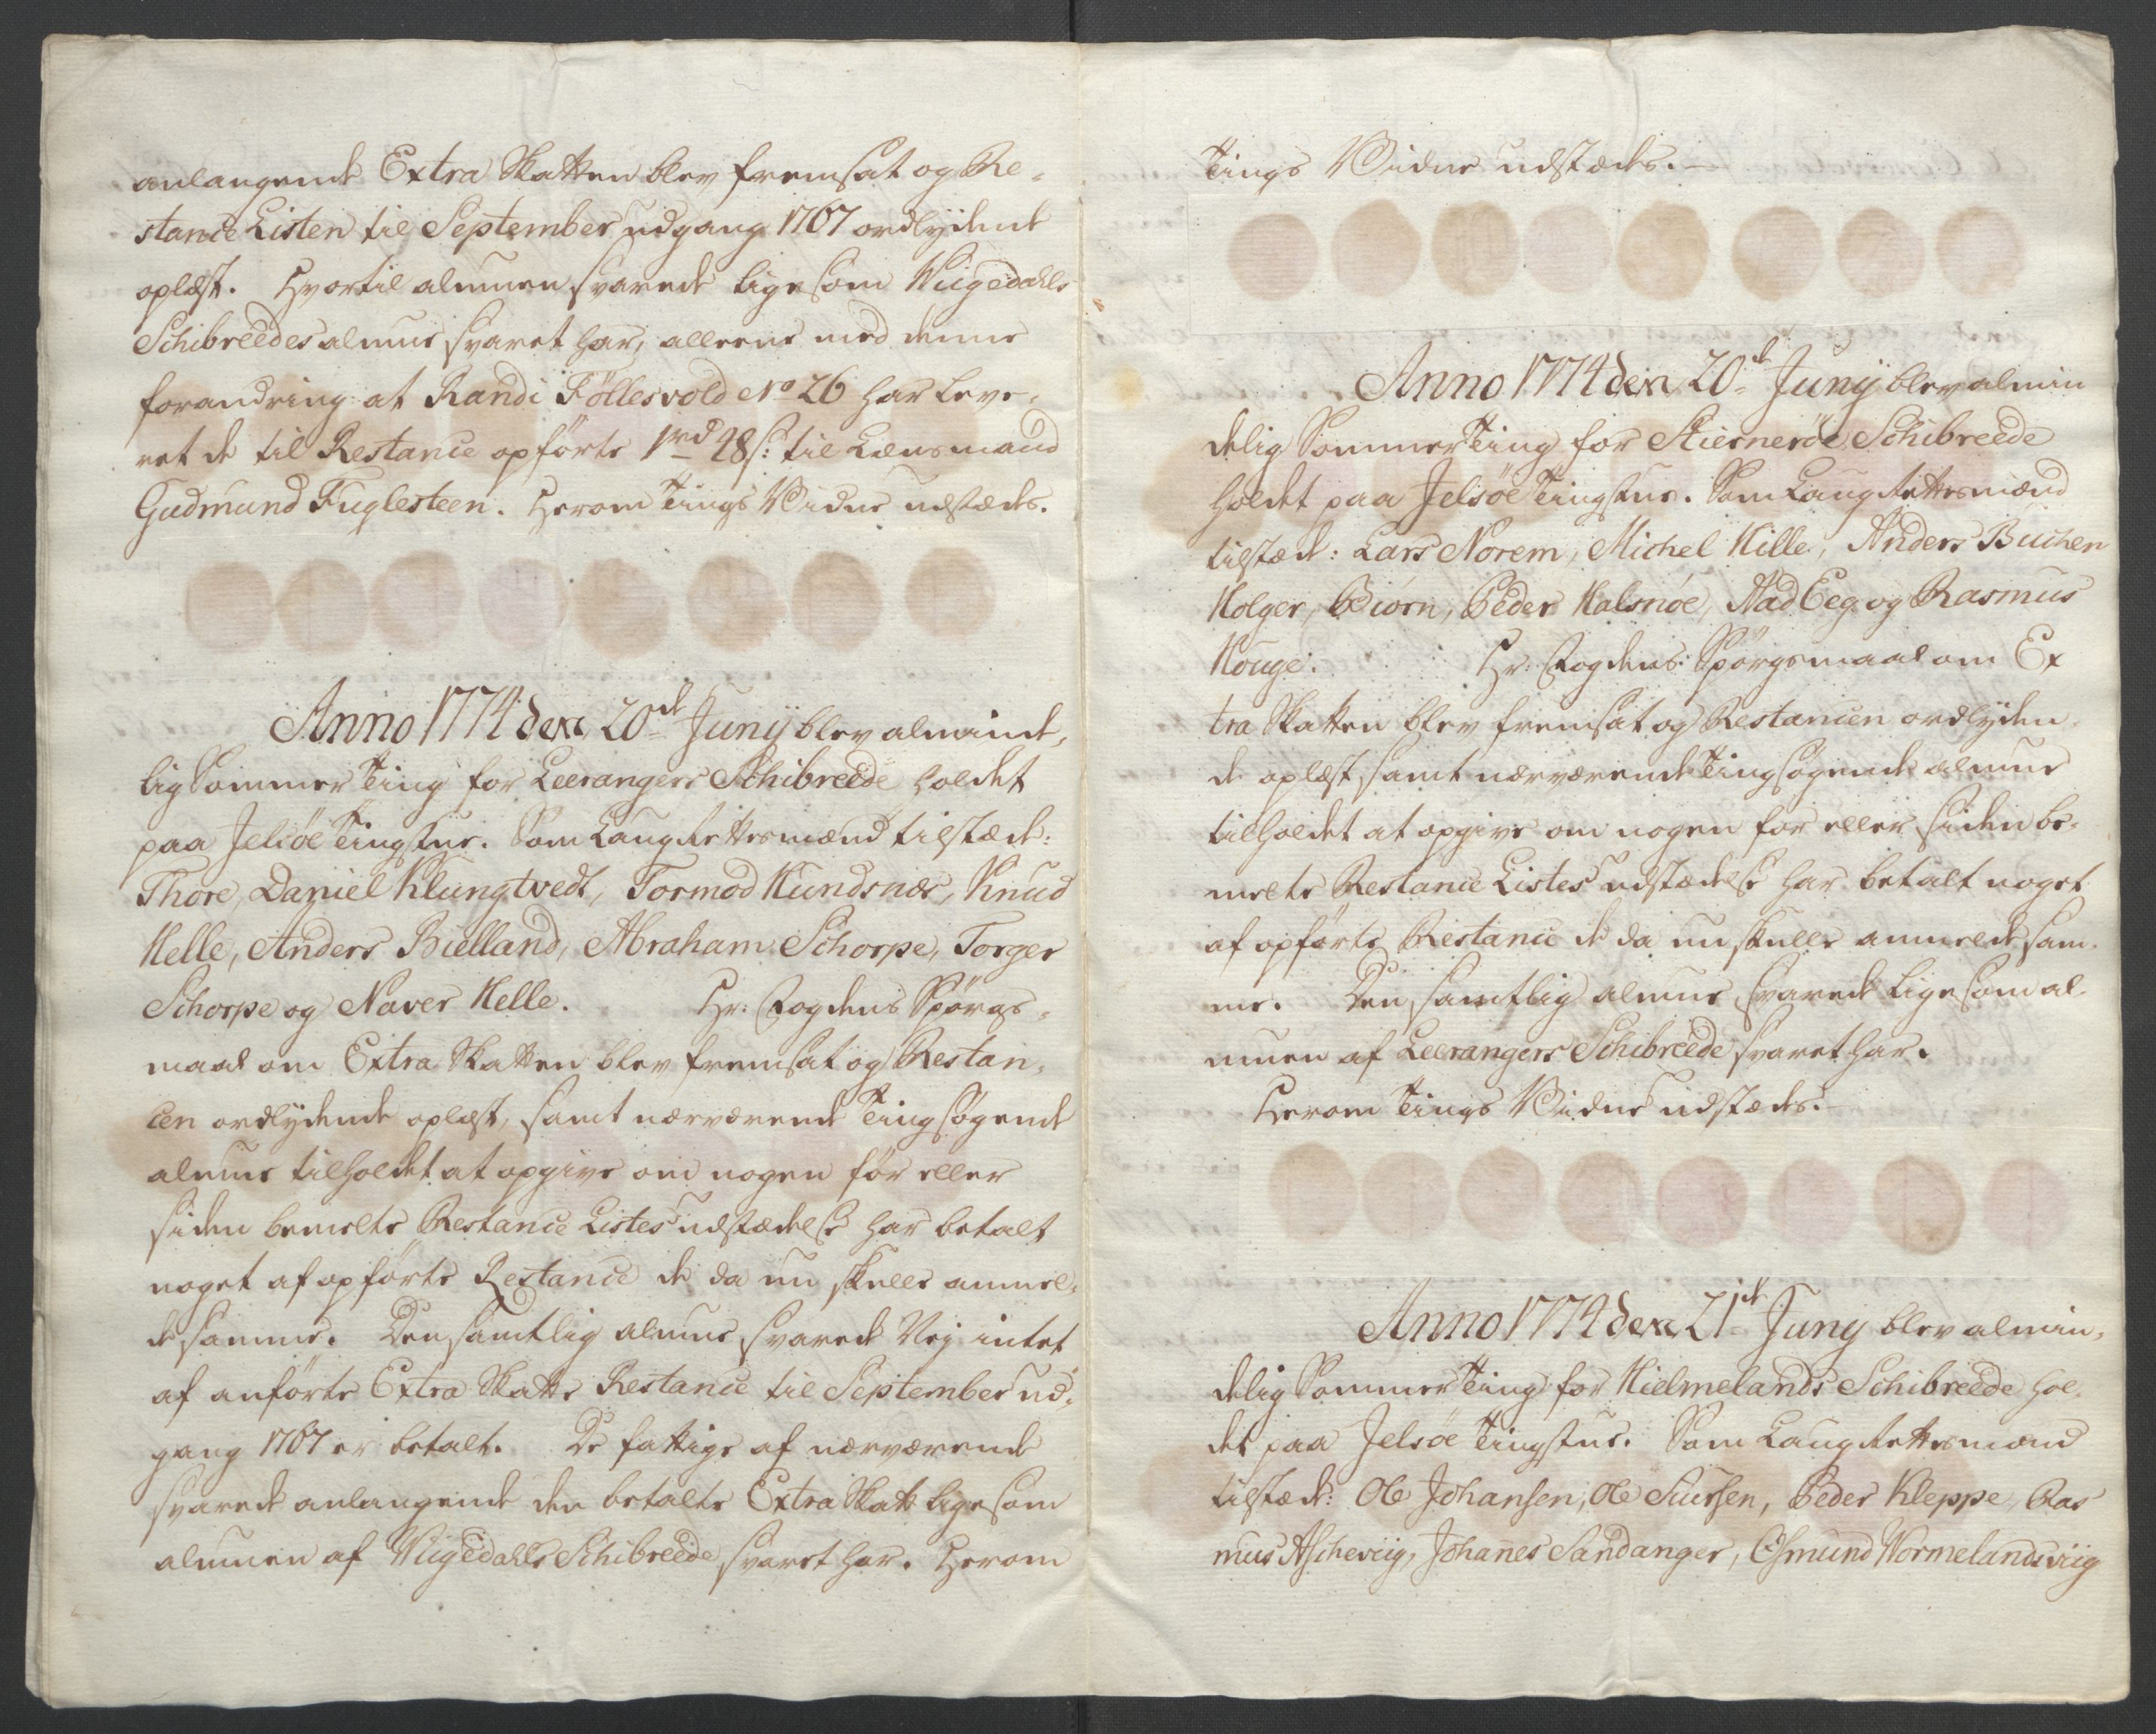 anlangende Extra Skatten blev fremsat og Re-
stance Listen til September udgang 1767 ordlydende
oplæst. Hvortil almuen svarede ligesom Wiigedahls
Schibreedes almue svaret har, alleene med denne
forandring at Randi Föllesvold No 26 har leve-
ret de til Restance opförte 1rd 48 s: til Lænsmand
Gudmund Fuglesteen. Herom Tings Vidne udstædes.
Anno 1774 den 20de Junij blev alminde-
lig Sommer Ting for Leerangers Schibreede holdet
paa Jelsöe Tingstue. Som Laugrettesmænd tilstæde:
Thore, Daniel Klungtvedt, Tormod Hundsnæs, Knud
Helle, Anders Bielland, Abraham Schorpe, Torger
Schorpe og Naver Helle. Hr: Fogdens Spörgs-
maal om Extra Skatten blev fremsat og Restan-
cen ordlydende oplæst, samt nærværende Tingsögende
almue tilholdet at opgive om nogen för eller
siden bemelte Restance Listes udstædelse har betalt
noget af opförte Restance de da nu skulle anmel-
de samme. Den samtlig almue svarede Nej intet
af anförte Extra Skatte Restance til September ud-
gang 1767 er betalt. De fattige af nærværende
svarede anlangende den betalte Extra Skatt ligesom
almuen af Wiigedahls Schibreede svaret har. Herom
Tings Vidne udstædes.
Anno 1774 den 20de Junij blev almin
delig Sommer Ting for Stierneröe Schibreede
holdet paa Jelsöe Tingstue. Som Laugrettesmænd
tilstæde: Lars Norem, Michel Hille, Anders Buchen
Holger, Biörn, Peder Halsnöe, Aad Eeg og Rasmus
Houge. Hr: Fogdens Spörgsmaal om Ex
tra Skatten blev fremsat og Restancen ordlyden-
de oplæst, samt nærværende Tingsögende almue
tilholdet at opgive om nogen för eller siden be-
melte Restance Listes udstædelse har betalt noget
af opförte Restance de da nu skulle anmelde sam-
me. Den samtlig almue svarede ligesom al-
muen af Leerangers Schibreede svaret har.
Herom Tings Vidne udstædes.
Anno 1774 den 21de Juny blev almin-
delig Sommer Ting for Hielmelands Schibreede hol-
det paa Jelsöe Tingstue. Som Laugrettesmænd
tilstæde: Ole Johansen, Ole Siursen, Peder Kleppe, Ras
mus Ascheviig, Johanes Sandanger, Osmund Wormelandsviig